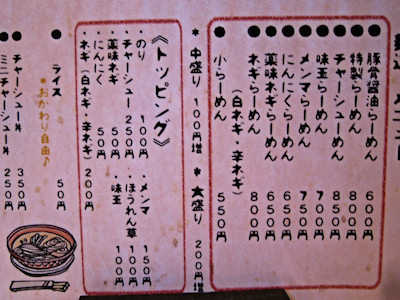 豚骨醤油らーめん 600円
特製らーめん 800円
チャーシューらーめん 850円
味玉らーめん 700円
メンマらーめん 750円
にんにくらーめん 650円
薬味ネギらーめん 650円
ネギらーめん 800円
(白ネギ・辛ネギ)
小らーめん 550円
*中盛り 100円増 *大盛り 200円増
《トッピング》
・のり 100円
・チャーシュー 250円
・薬味ネギ 50円
・にんにく 50円
・ネギ(白ネギ・辛ネギ) 200円
・メンマ 150円
・ほうれん草 100円
・味玉 100円
ライス 50円
*おかわり自由♪
チャーシュー丼 350円
ミニチャーシュー丼 250円